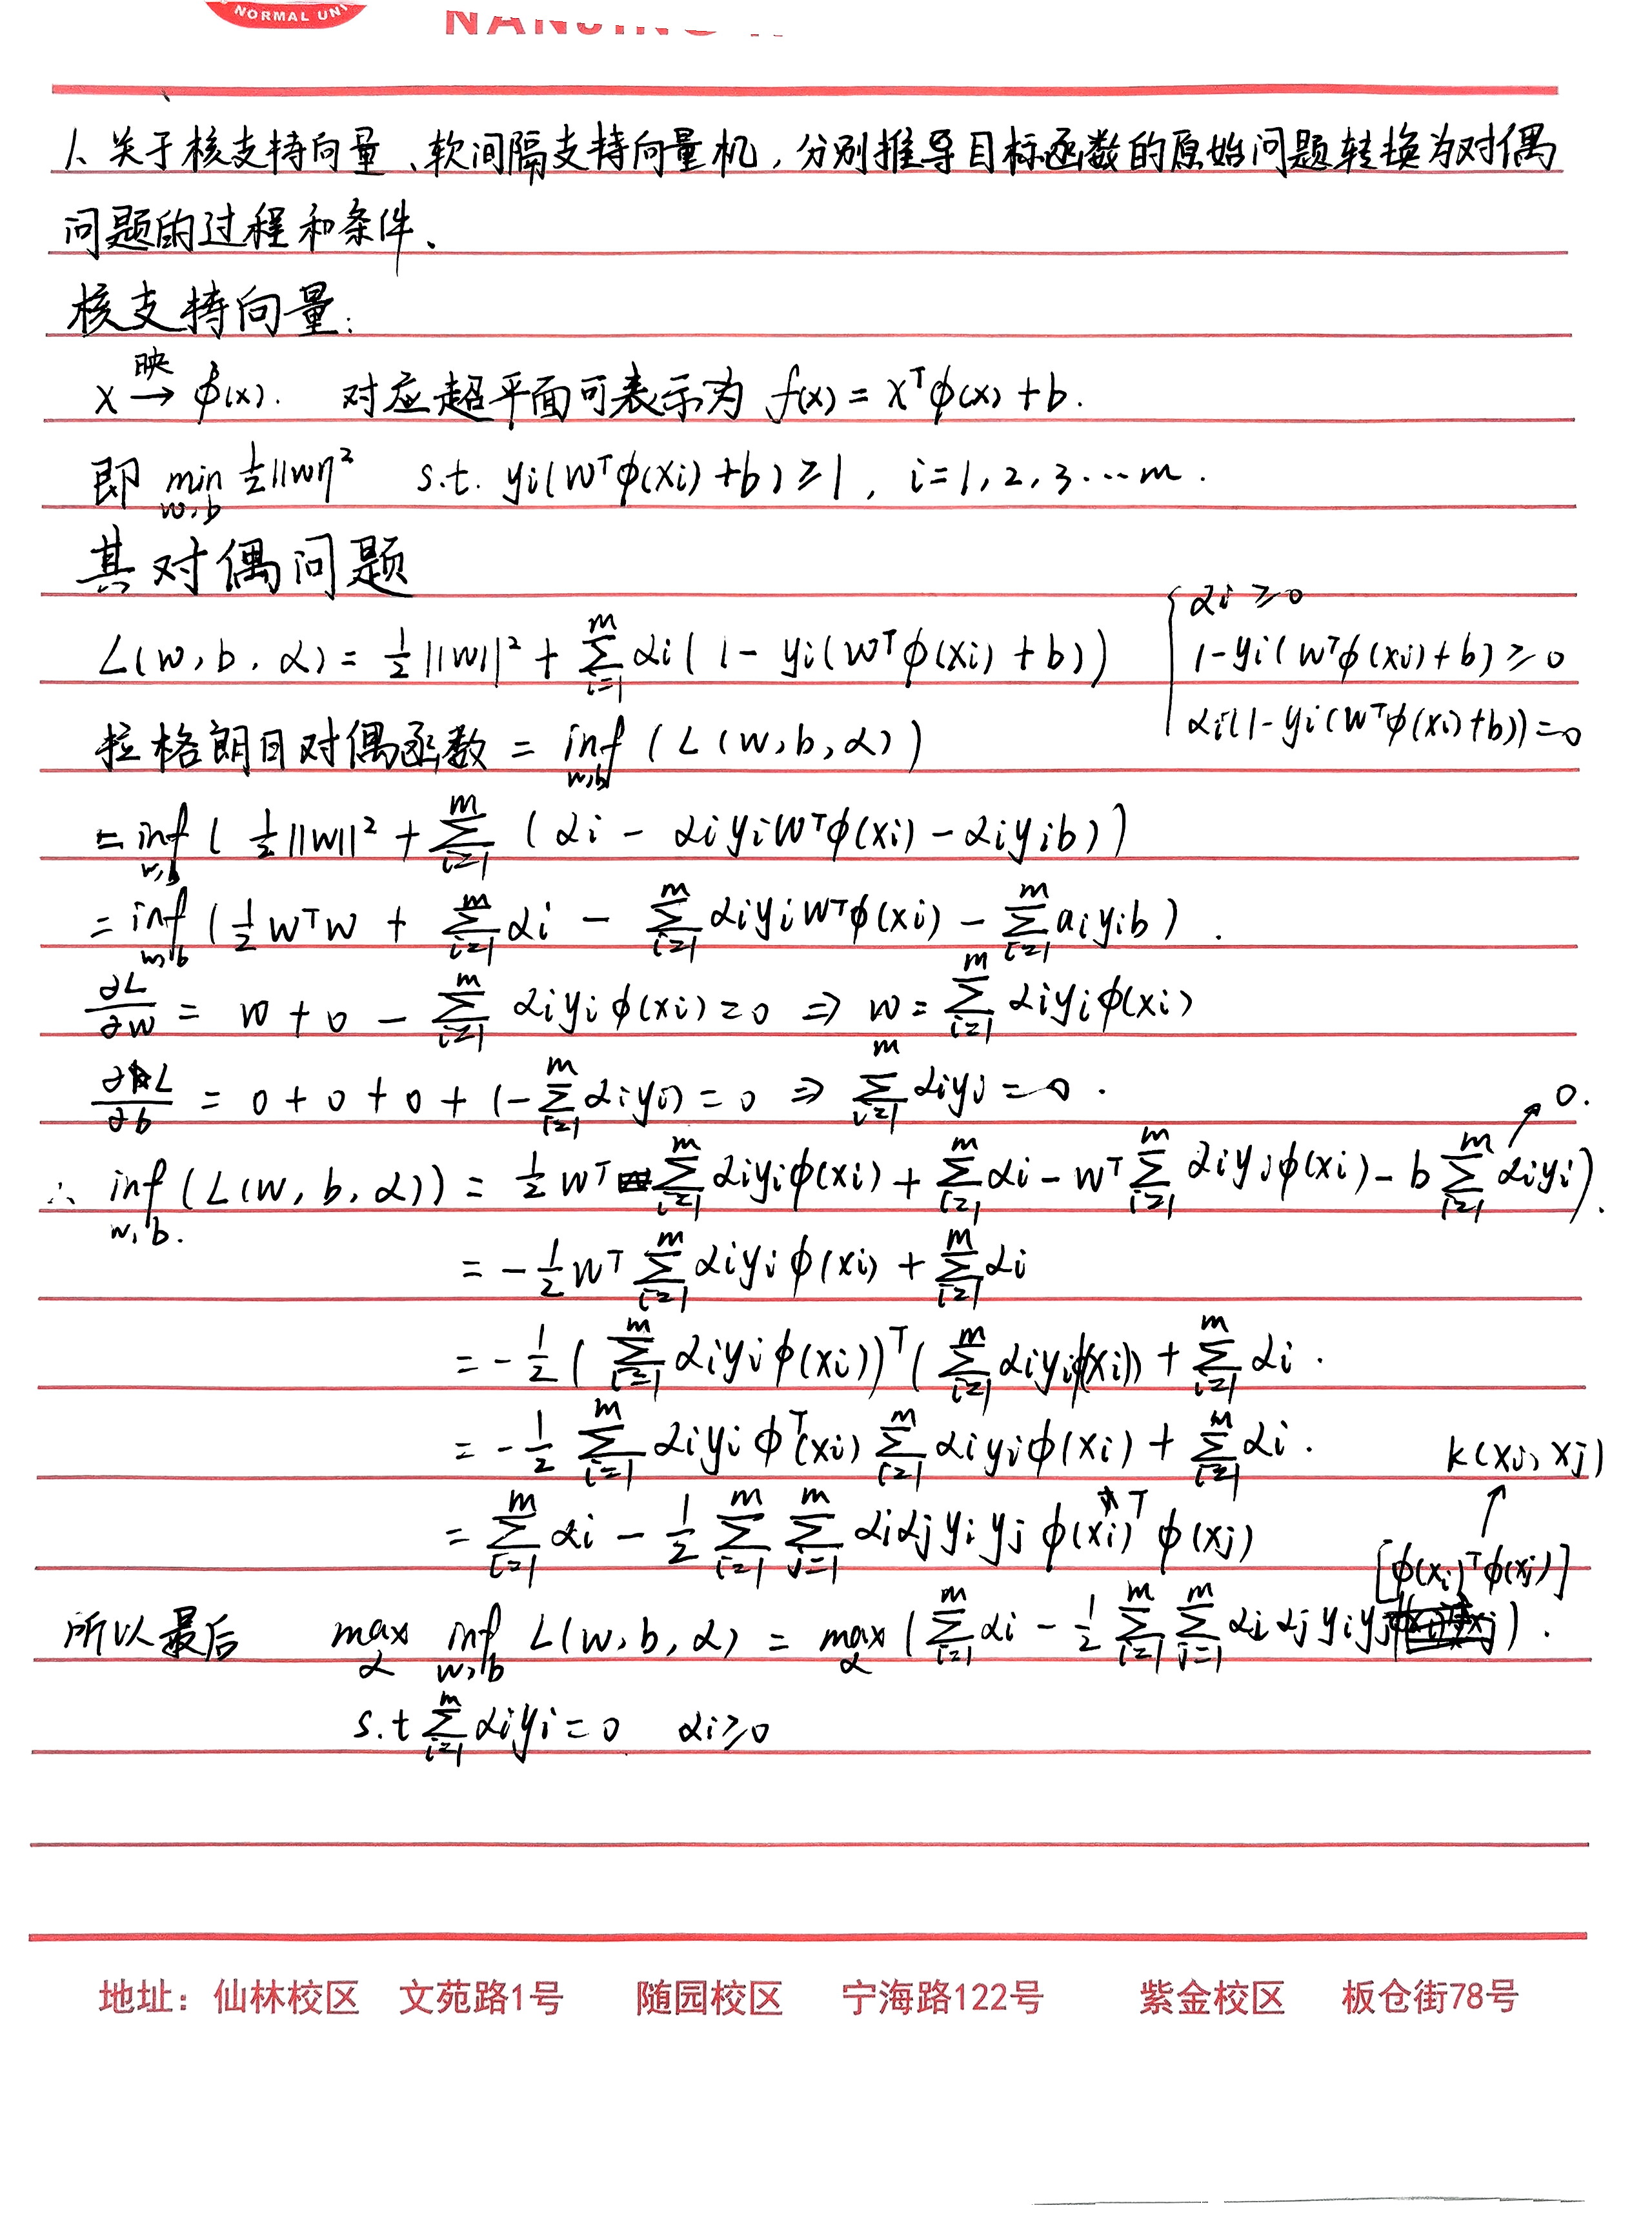 NORMAL UNI
NANJING
1、关于核支持向量、软间隔支持向量机，分别推导目标函数的原始问题转换为对偶
问题的过程和条件、
核支持向量：
x →映 ϕ(x). 对应超平面可表示为 f(x) = x^T ϕ(x) + b.
即 min_{w,b} ½||w||² s.t. yi(w^T ϕ(xi) + b) ≥ 1, i = 1, 2, 3 ... m.
其对偶问题
αi ≥ 0
L(w, b, α) = ½||w||² + ∑_{i=1}^m αi(1 - yi(w^T ϕ(xi) + b)) 1 - yi(w^T ϕ(xi) + b) ≥ 0
拉格朗日对偶函数 = inf_{w,b} (L(w, b, α)) αi(1 - yi(w^T ϕ(xi) + b)) = 0
= inf_{w,b} (½||w||² + ∑_{i=1}^m (αi - αi yi w^T ϕ(xi) - αi yi b))
= inf_{w,b} (½ w^T w + ∑_{i=1}^m αi - ∑_{i=1}^m αi yi w^T ϕ(xi) - ∑_{i=1}^m ai yi b).
∂L/∂w = w + 0 - ∑_{i=1}^m αi yi ϕ(xi) = 0 ⇒ w = ∑_{i=1}^m αi yi ϕ(xi)
∂L/∂b = 0 + 0 + 0 + (-∑_{i=1}^m αi yi) = 0 ⇒ ∑_{i=1}^m αi yi = 0. 0.
∴ inf_{w,b}. (L(w, b, α)) = ½ w^T ∑_{i=1}^m αi yi ϕ(xi) + ∑_{i=1}^m αi - w^T ∑_{i=1}^m αi yi ϕ(xi) - b ∑_{i=1}^m αi yi).
= -½ w^T ∑_{i=1}^m αi yi ϕ(xi) + ∑_{i=1}^m αi
= -½ (∑_{i=1}^m αi yi ϕ(xi))^T (∑_{i=1}^m αi yi ϕ(xi)) + ∑_{i=1}^m αi.
= -½ ∑_{i=1}^m αi yi ϕ^T(xi) ∑_{i=1}^m αi yi ϕ(xi) + ∑_{i=1}^m αi. k(xi, xj)
= ∑_{i=1}^m αi - ½ ∑_{i=1}^m ∑_{j=1}^m αi αj yi yj ϕ(xi)^T ϕ(xj)
[ϕ(xi)^T ϕ(xj)]
所以最后 max_α inf_{w,b} L(w, b, α) = max_α (∑_{i=1}^m αi - ½ ∑_{i=1}^m ∑_{j=1}^m αi αj yi yj).
s.t ∑_{i=1}^m αi yi = 0 αi ≥ 0
地址：仙林校区 文苑路1号 随园校区 宁海路122号 紫金校区 板仓街78号